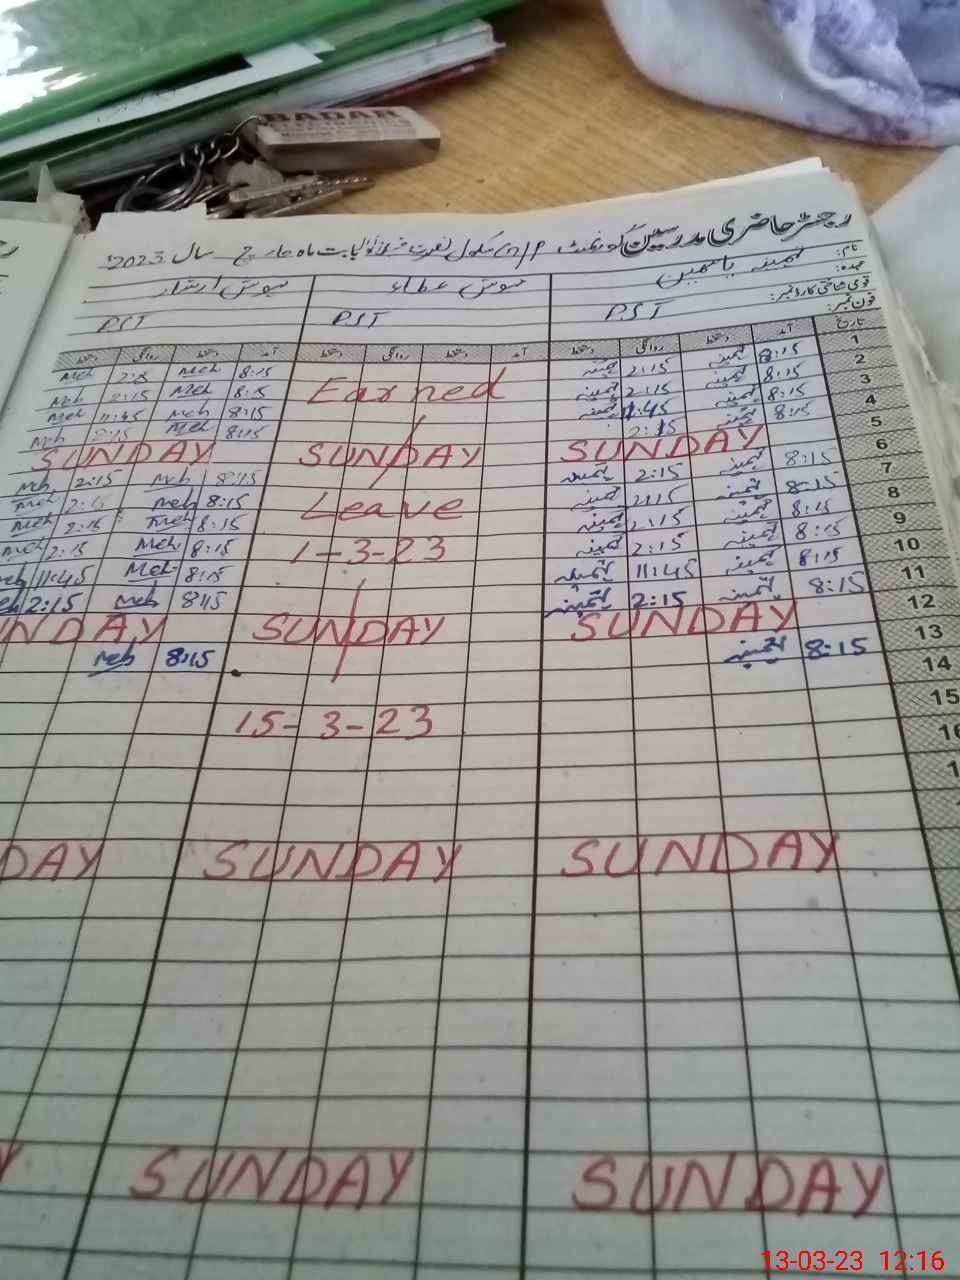 BADAR
رجسٹر حاضری مدرسین گورنمنٹ سکول بابت ماہ مارچ سال 2023ء
نام: ثمینہ یاسمین سوس عطاء سوس ارشاد
عہدہ: P.S.T P.S.T P.S.T
قومی شناختی کارڈ نمبر:
فون نمبر:
تاریخ آمد دستخط روانگی دستخط آمد دستخط روانگی دستخط آمد دستخط روانگی دستخط
1 8:15 ثمینہ 2:15 ثمینہ 8:15 Meh 2:15 Meh
2 8:15 ثمینہ 2:15 ثمینہ Earned 8:15 Meh 2:15 Meh
3 8:15 ثمینہ 11:45 ثمینہ 8:15 Meh 11:45 Meh
4 8:15 ثمینہ 2:15 8:15 Meh 2:15 Meh
5 SUNDAY SUNDAY SUNDAY
6 8:15 ثمینہ 2:15 ثمینہ 8:15 Meh 2:15 Meh
7 8:15 ثمینہ 2:15 ثمینہ Leave 8:15 Meh 2:15 Meh
8 8:15 ثمینہ 2:15 ثمینہ 8:15 Meh 2:15 Meh
9 8:15 ثمینہ 2:15 ثمینہ 1-3-23 8:15 Meh 2:15 Meh
10 8:15 ثمینہ 11:45 ثمینہ 8:15 Meh 11:45 Meh
11 8:15 ثمینہ 2:15 ثمینہ 8:15 Meh 2:15 Meh
12 SUNDAY SUNDAY SUNDAY
13 8:15 ثمینہ 8:15 Meh
14
15 15-3-23
16
SUNDAY SUNDAY DAY
SUNDAY SUNDAY Y
13-03-23 12:16